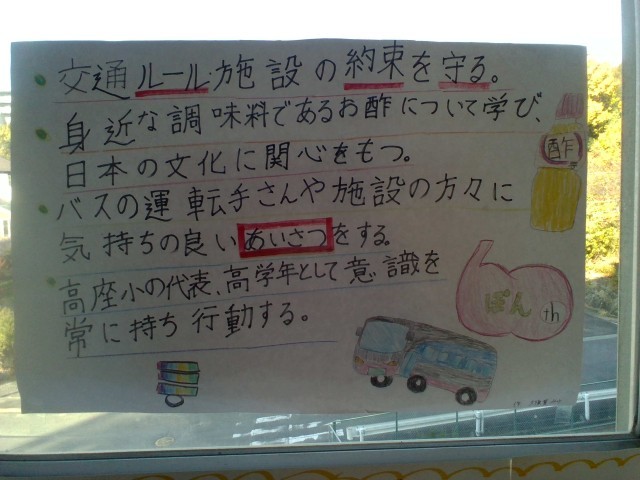 交通ルール・施設の約束を守る。
身近な調味料であるお酢について学び、
日本の文化に関心をもつ。
酢
バスの運転手さんや施設の方々に
気持ちの良いあいさつをする。
高座小の代表、高学年として意識を
常に持ち行動する。
ぽん
th